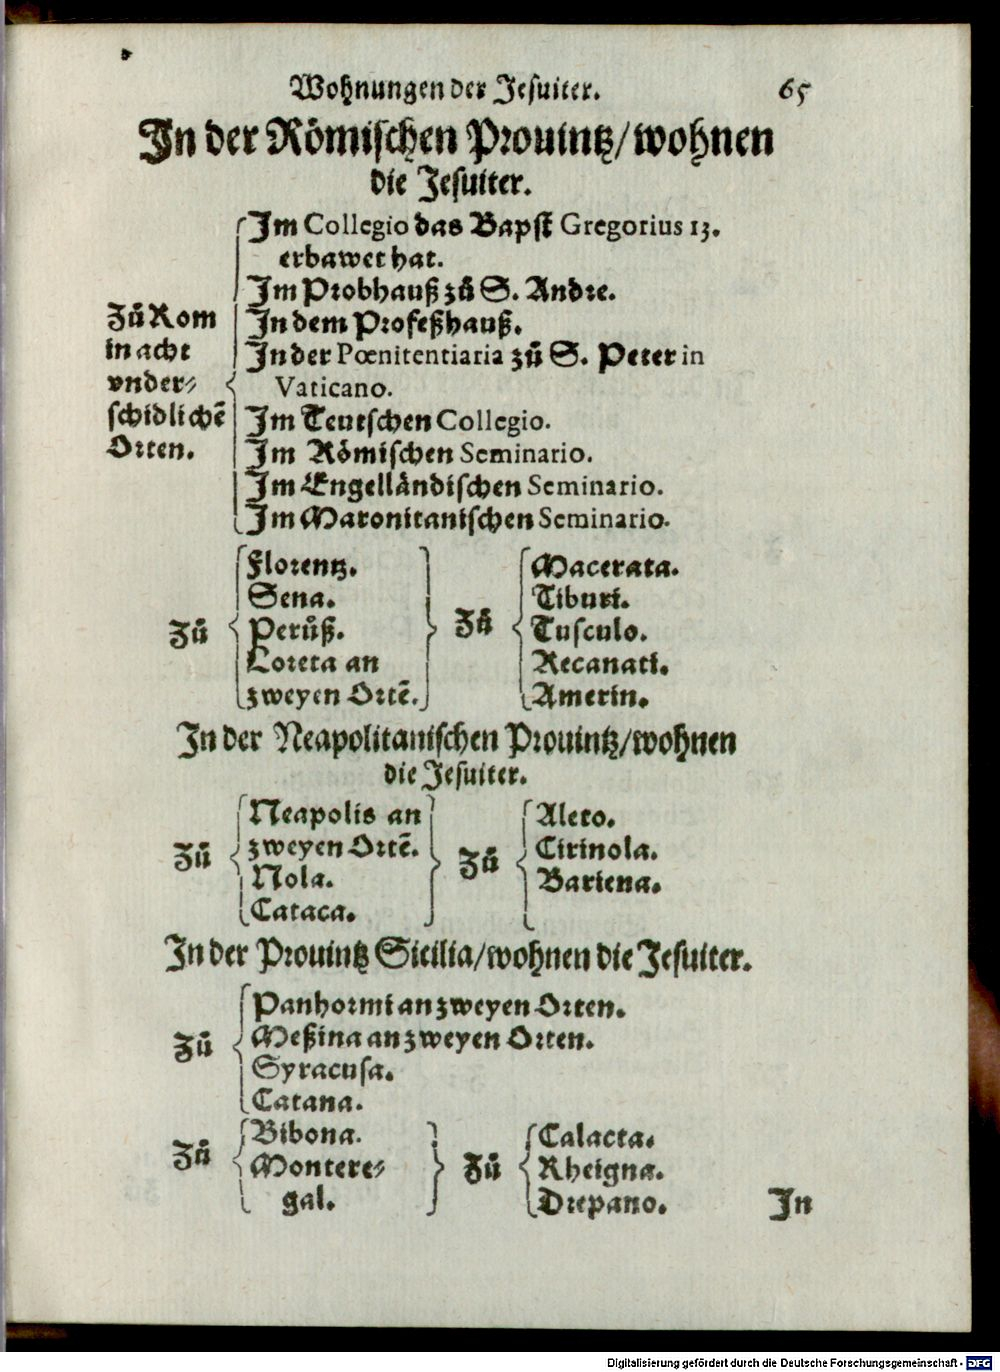 Wohnungen der Jesuiter. 65
In der Römischen Prouintz/wohnen
die Jesuiter.
Zů Rom
in acht
vnder⸗
schidlichē
Orten.
Im Collegio das Bapst Gregorius 13.
erbawet hat.
Im Probhauß zů S. Andre.
In dem Profeßhauß.
In der Pœnitentiaria zů S. Peter in
Vaticano.
Im Teutschen Collegio.
Im Römischen Seminario.
Im Engelländischen Seminario.
Im Maronitanischen Seminario.
Zů
Florentz.
Sena.
Perůß.
Loreta an
zweyen Ortē.
Zů
Macerata.
Tiburi.
Tusculo.
Recanati.
Amerin.
In der Neapolitanischen Prouintz/wohnen
die Jesuiter.
Zů
Neapolis an
zweyen Ortē.
Nola.
Cataca.
Zů
Aleto.
Cirinola.
Bariena.
In der Prouintz Sicilia/wohnen die Jesuiter.
Zů
Panhormi an zweyen Orten.
Meßina an zweyen Orten.
Syracusa.
Catana.
Zů
Bibona.
Montere⸗
gal.
Zů
Calacta.
Rheigna.
Drepano.
In
Digitalisierung gefördert durch die Deutsche Forschungsgemeinschaft - DFG